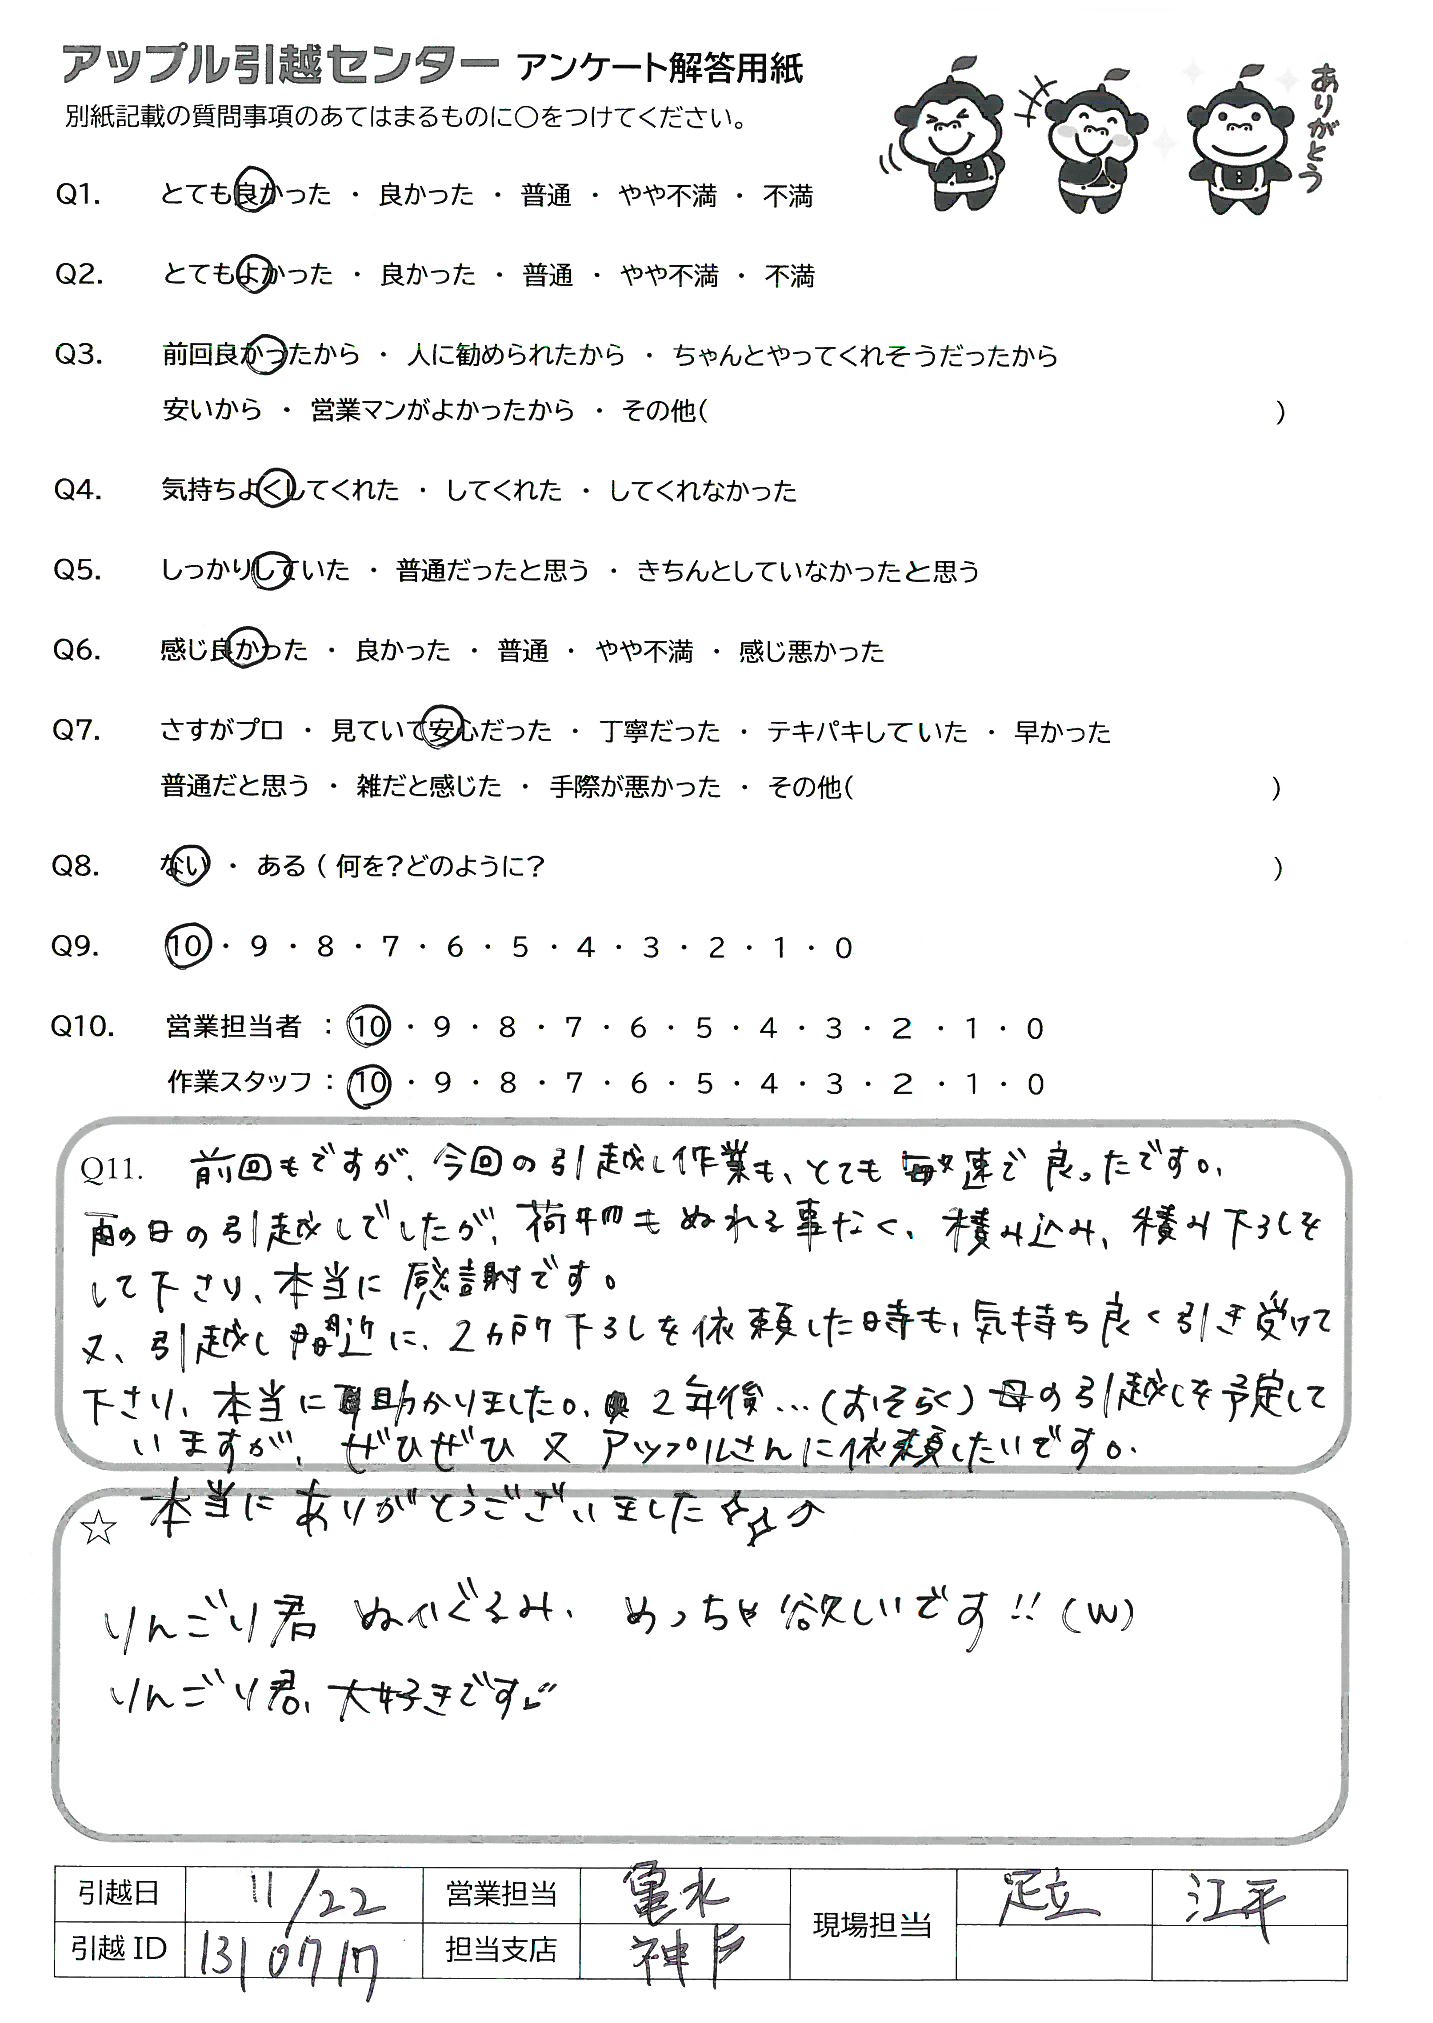 アップル引越センター アンケート解答用紙
別紙記載の質問事項のあてはまるものに○をつけてください。
ありがとう
Q1. とても良かった ・ 良かった ・ 普通 ・ やや不満 ・ 不満
Q2. とてもよかった ・ 良かった ・ 普通 ・ やや不満 ・ 不満
Q3. 前回良かったから ・ 人に勧められたから ・ ちゃんとやってくれそうだったから
安いから ・ 営業マンがよかったから ・ その他( )
Q4. 気持ちよくしてくれた ・ してくれた ・ してくれなかった
Q5. しっかりしていた ・ 普通だったと思う ・ きちんとしていなかったと思う
Q6. 感じ良かった ・ 良かった ・ 普通 ・ やや不満 ・ 感じ悪かった
Q7. さすがプロ ・ 見ていて安心だった ・ 丁寧だった ・ テキパキしていた ・ 早かった
普通だと思う ・ 雑だと感じた ・ 手際が悪かった ・ その他( )
Q8. ない ・ ある ( 何を?どのように? )
Q9. 10 ・ 9 ・ 8 ・ 7 ・ 6 ・ 5 ・ 4 ・ 3 ・ 2 ・ 1 ・ 0
Q10. 営業担当者 : 10 ・ 9 ・ 8 ・ 7 ・ 6 ・ 5 ・ 4 ・ 3 ・ 2 ・ 1 ・ 0
作業スタッフ : 10 ・ 9 ・ 8 ・ 7 ・ 6 ・ 5 ・ 4 ・ 3 ・ 2 ・ 1 ・ 0
Q11. 前回もですが、今回の引越し作業も、とても敏速で良ったです。
雨の日の引越しでしたが、荷物もぬれる事なく、積み込み、積み下ろしを
して下さり、本当に感謝です。
又、引越し間近に、2カ所下ろしを依頼した時も、気持ち良く引き受けて
下さり、本当に助かりました。2年後…(おそらく)母の引越しを予定して
いますが、ぜひぜひ又アップルさんに依頼したいです。
☆ 本当にありがとうございました☆☆
りんごり君 ぬいぐるみ、めっちゃ欲しいです!!(w)
りんごり君、大好きです
引越日 11/22 営業担当 亀水 現場担当 足立 江平
引越ID 1310717 担当支店 神戸